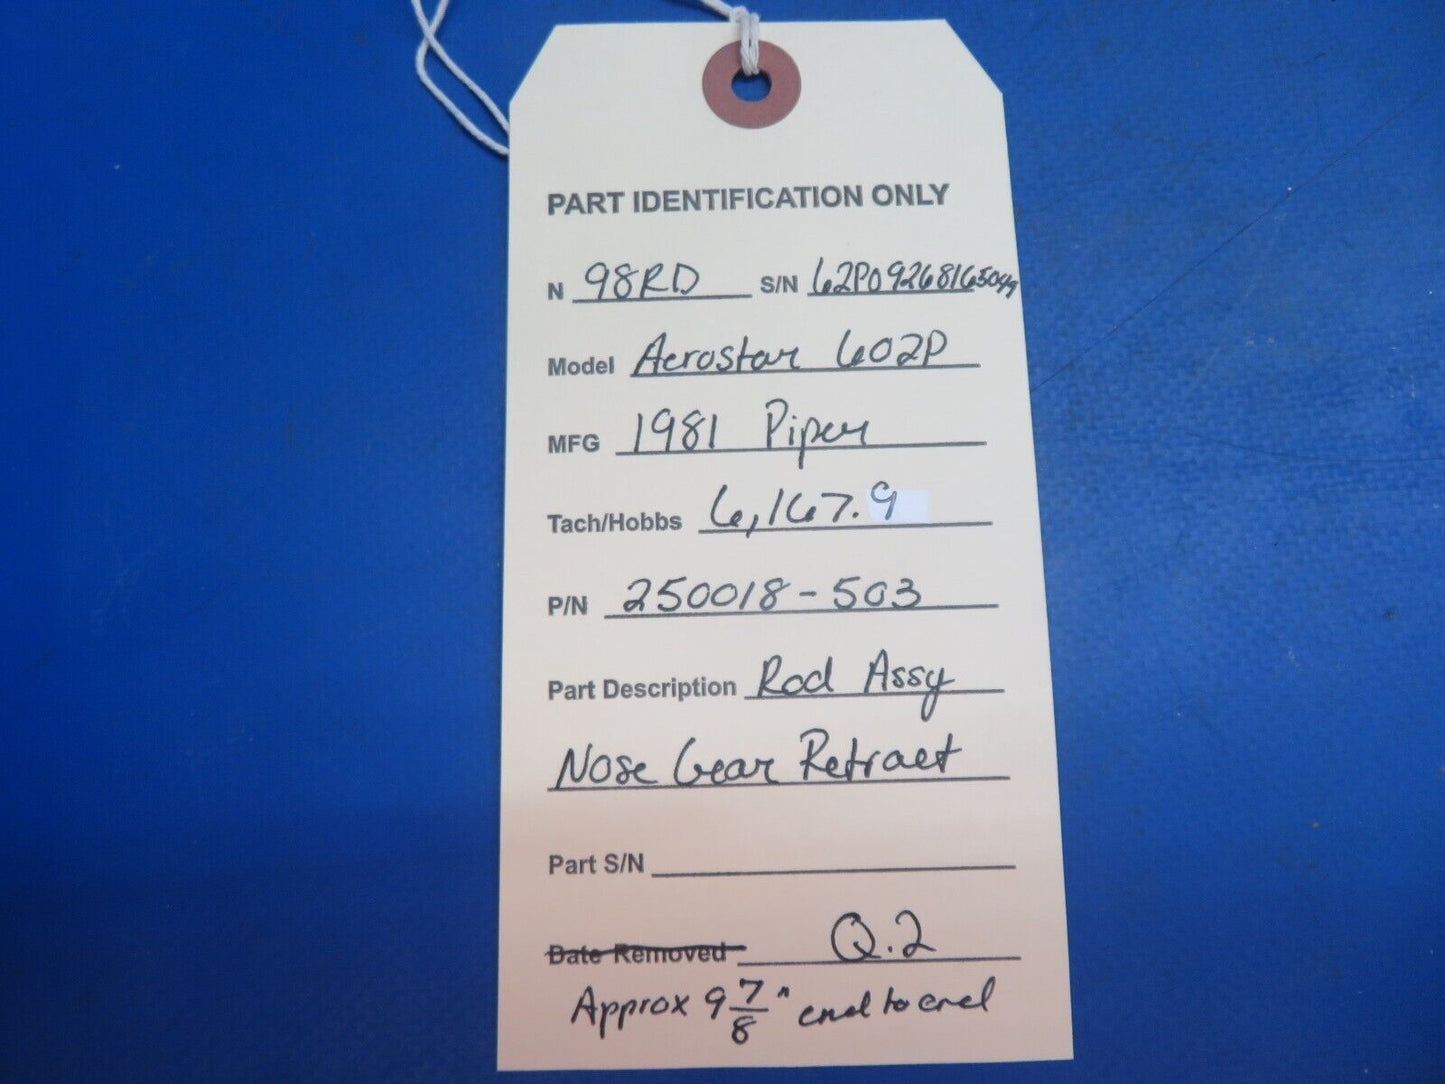 PART IDENTIFICATION ONLY
N 98RD S/N 62P09268165049
Model Aerostar 602P
MFG 1981 Piper
Tach/Hobbs 6,167.9
P/N 250018-503
Part Description Rod Assy
Nose Gear Retract
Part S/N
Date Removed Q.2
Approx 9 7/8" end to end